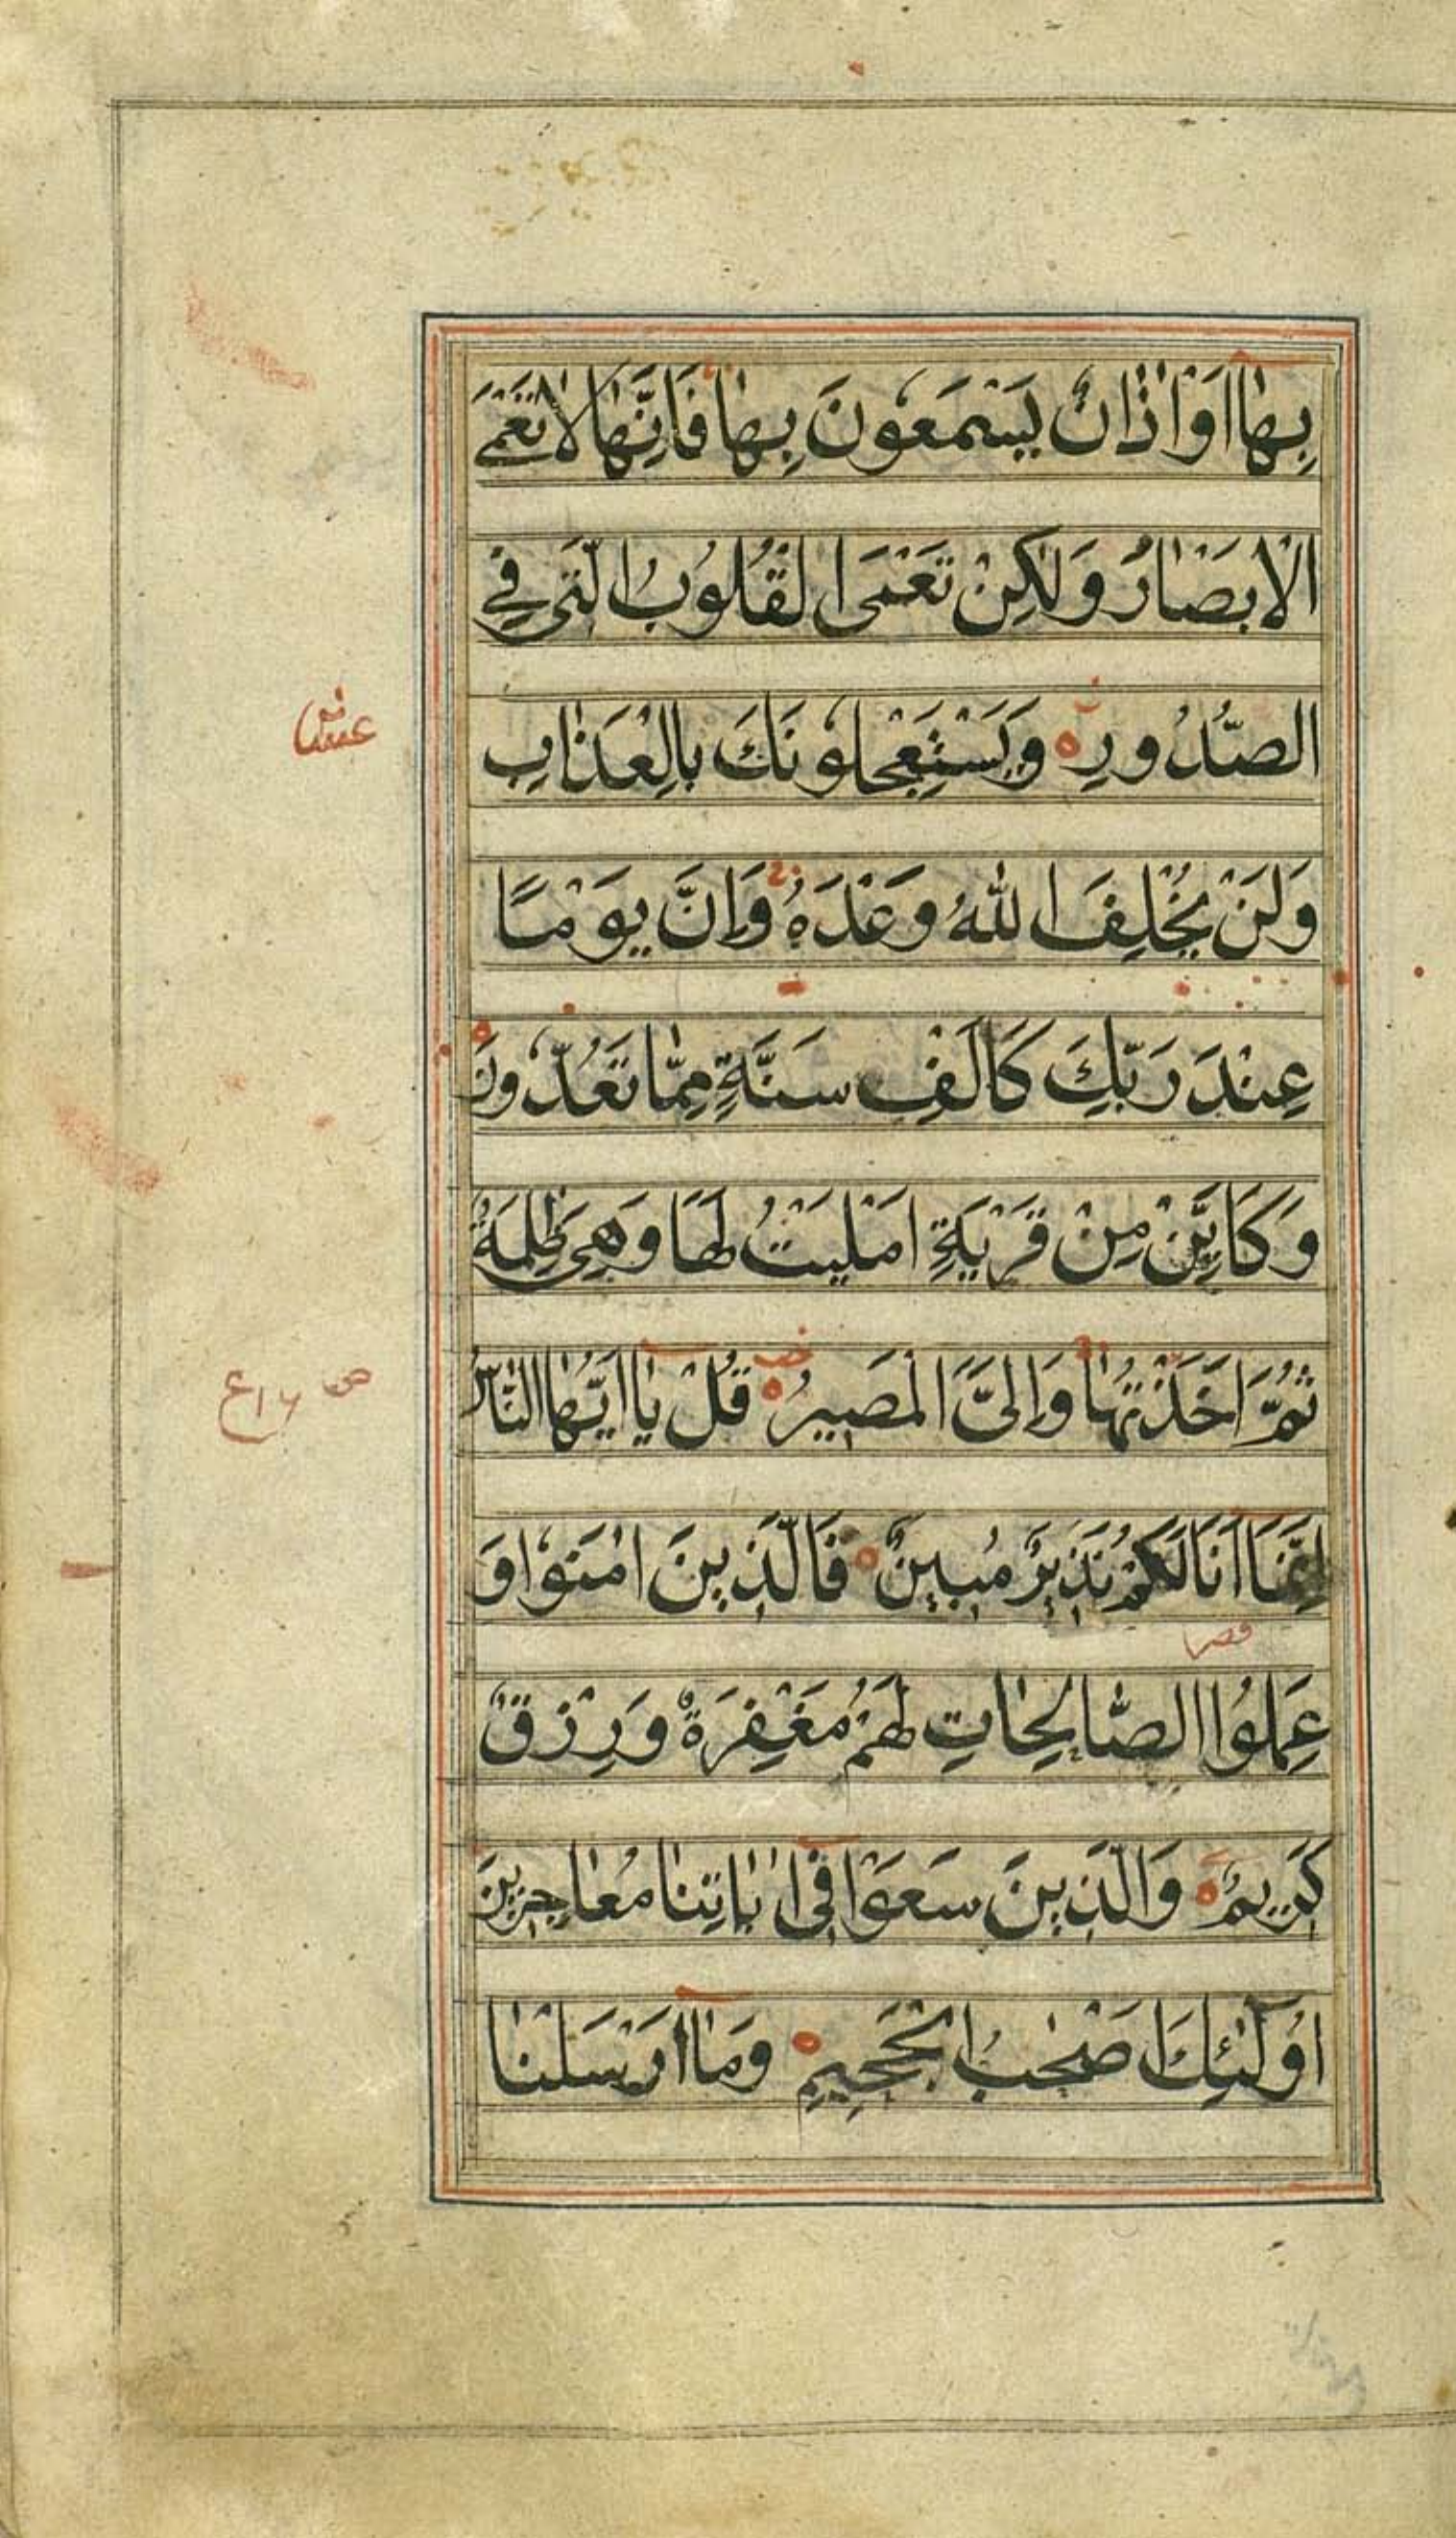 بِهٰا اَوْ اٰذٰانٌ يَسْمَعُونَ بِهٰا فَاِنَّهٰا لٰا تَعْمَى
الْاَبْصٰارُ وَلٰكِنْ تَعْمَى الْقُلُوبُ الَّتِى فِى
الصُّدُورِ وَيَسْتَعْجِلُونَكَ بِالْعَذٰابِ
وَلَنْ يُخْلِفَ اللّٰهُ وَعْدَهُ وَاِنَّ يَوْمًا
عِنْدَ رَبِّكَ كَاَلْفِ سَنَةٍ مِمّٰا تَعُدُّونَ
وَكَاَيِّنْ مِنْ قَرْيَةٍ اَمْلَيْتُ لَهَا وَهِىَ ظٰلِمَةٌ
ثُمَّ اَخَذْتُهٰا وَاِلَىَّ الْمَصِيرُ قُلْ يٰا اَيُّهَا النّٰاسُ
اِنَّمَا اَنَا لَكُمْ نَذِيرٌ مُبِينٌ فَالَّذِينَ اٰمَنُوا وَ
عَمِلُوا الصّٰالِحٰاتِ لَهُمْ مَغْفِرَةٌ وَرِزْقٌ
كَرِيمٌ وَالَّذِينَ سَعَوْا فِى اٰيٰاتِنٰا مُعٰاجِزِينَ
اُولٰئِكَ اَصْحٰبُ الْجَحِيمِ وَمٰا اَرْسَلْنٰا